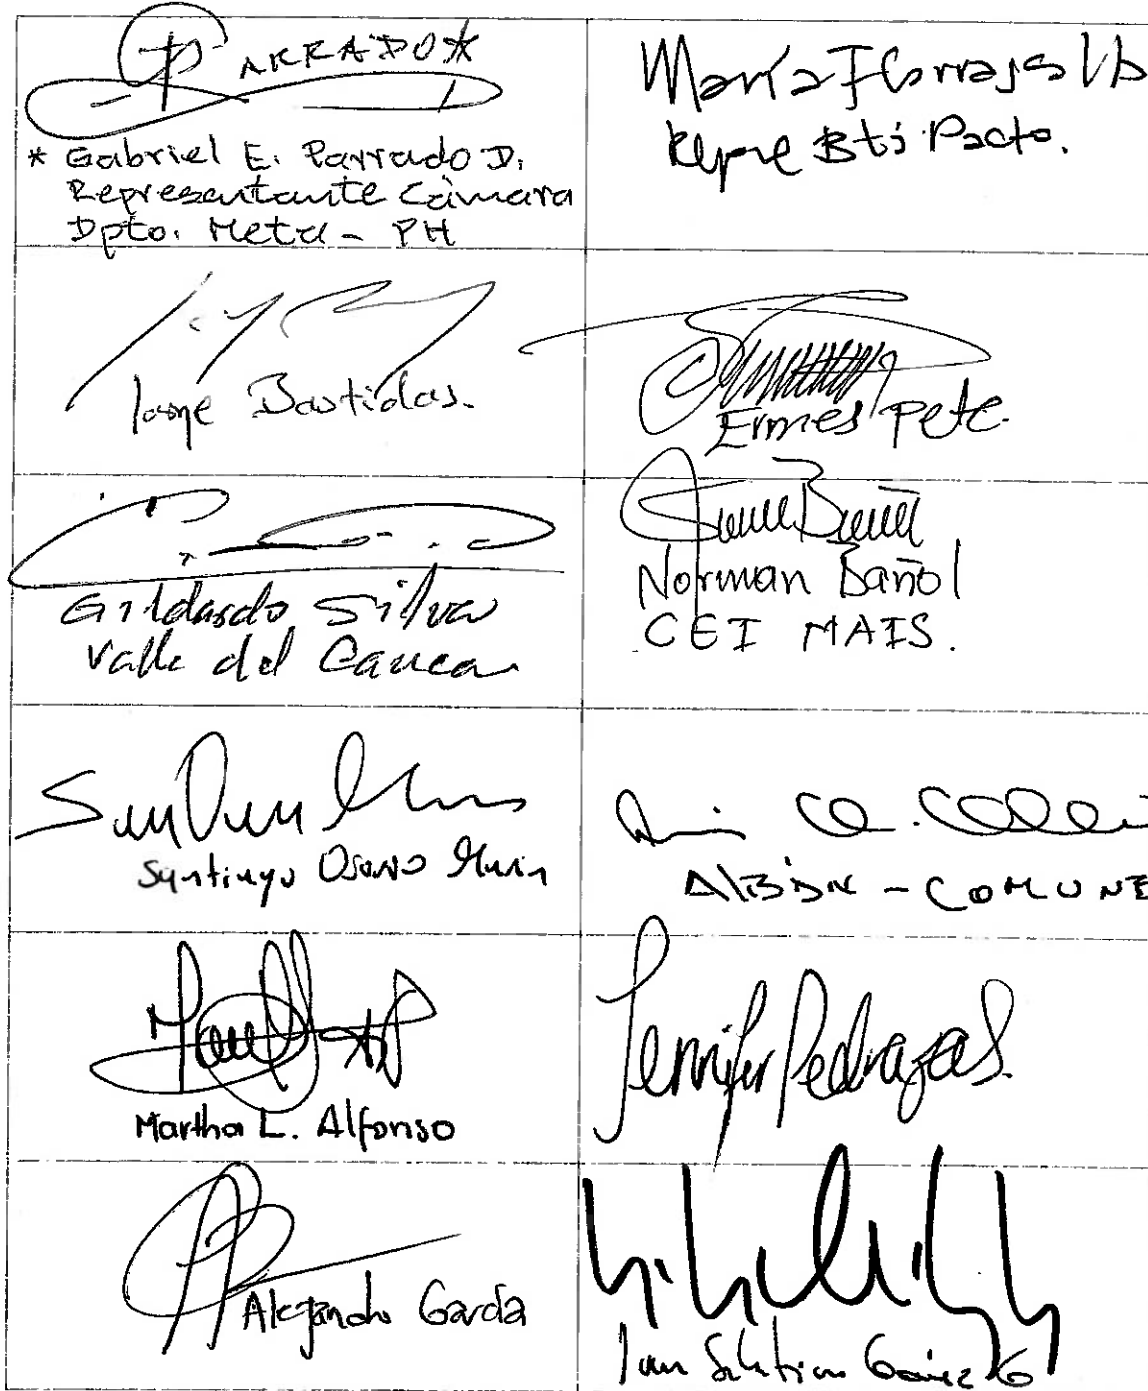 PARRADO*
* Gabriel E. Parrado D.
Representante Cámara
Dpto. Meta - PH
María F Carrasca
Repre Btá Pacto.
Jorge Bastidas.
Ermes Pete.
Gildardo Silva
Valle del Cauca
Norman Bañol
CEI MAIS.
Santiago Osorio Marin
Albán - COMUNE
Martha L. Alfonso
Jennifer Pedraza S.
Alejandro García
Juan Sebastian Gómez G